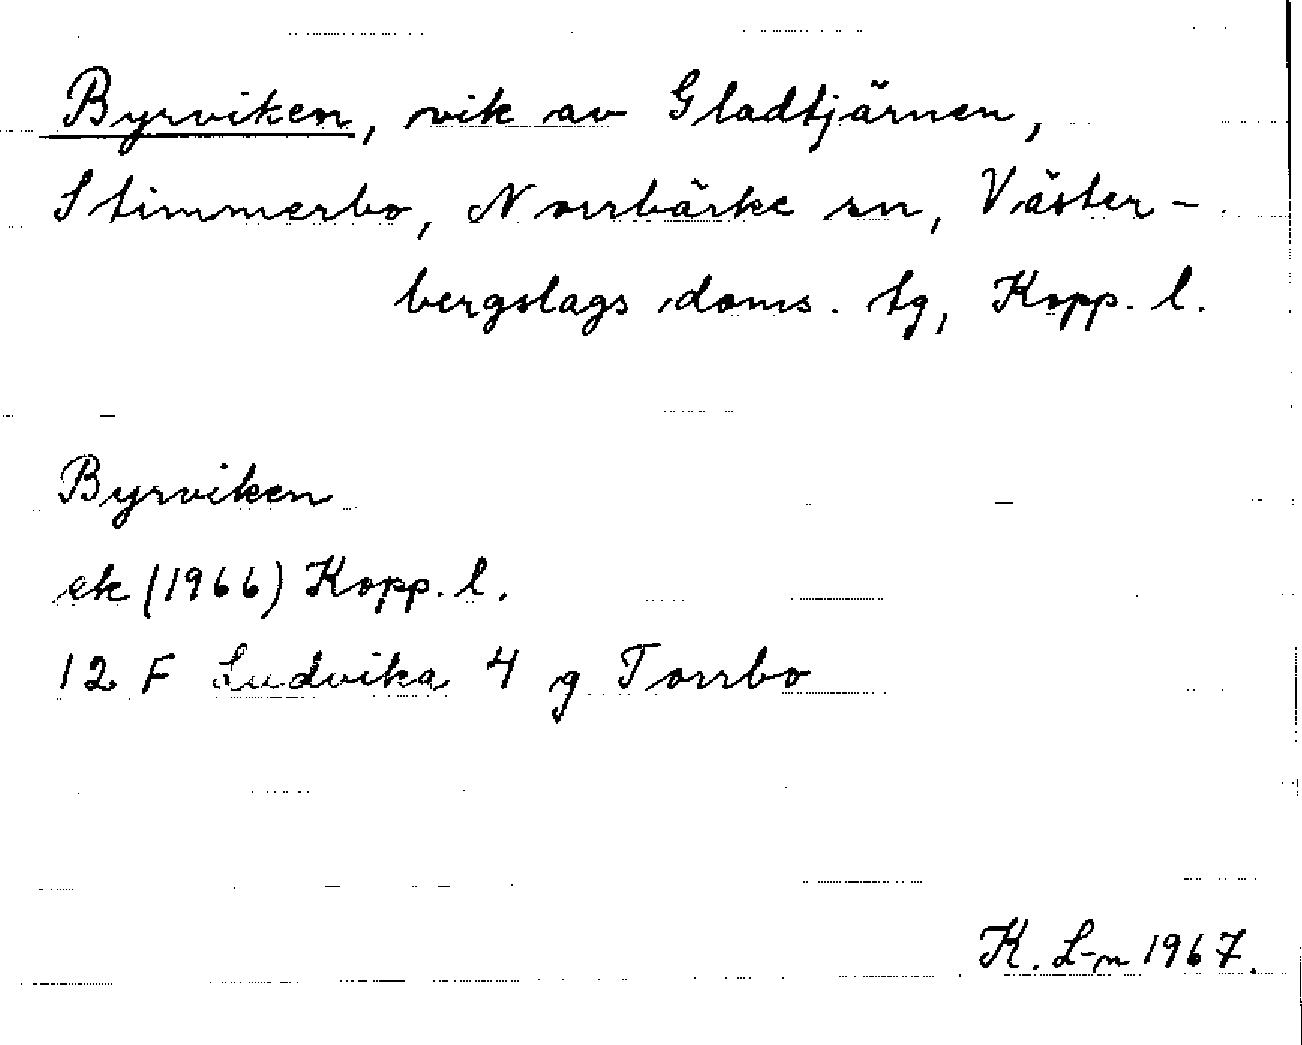 Byrviken, vik av Gladtjärnen,
Stimmerbo, Norrbärke sn, Väster-
bergslags doms. tg, Kopp. l.
Byrviken
ek (1966) Kopp. l.
12 F Ludvika 4 g Torrbo
K. L-n 1967.